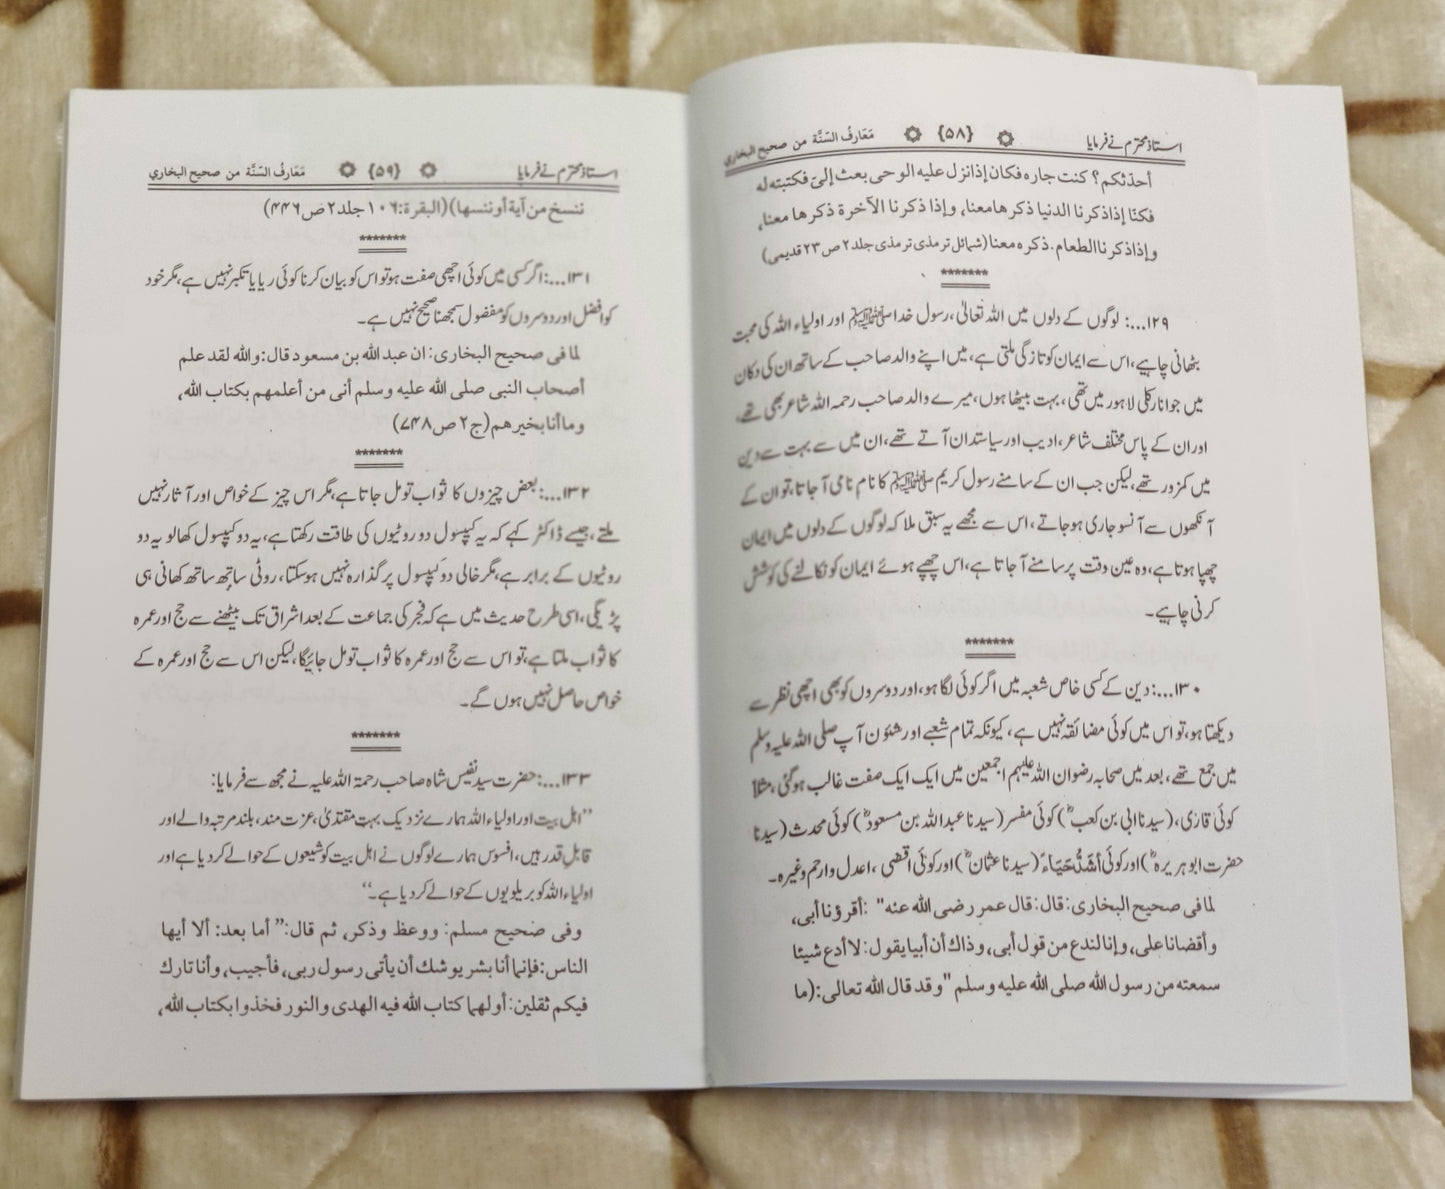 استاذ محترم نے فرمایا {۵۸} مَعَارفُ السّنَّة من صحيح البخاري
أحدّثكم؟ كنت جاره فكان إذا نزل عليه الوحى بعث إلىّ فكتبته له
فكنّا إذا ذكرنا الدنيا ذكرها معنا، وإذا ذكرنا الآخرة ذكرها معنا،
وإذا ذكرنا الطعام. ذكره معنا (شمائل ترمذى ترمذى جلد ۲ ص ۲۳ قدیمی)
*******
۱۲۹...: لوگوں کے دلوں میں اللہ تعالیٰ، رسول خدا ﷺ اور اولیاء اللہ کی محبت
بٹھانی چاہیے، اس سے ایمان کو تازگی ملتی ہے، میں اپنے والد صاحب کے ساتھ ان کی دکان
میں جو انارکلی لاہور میں تھی، بہت بیٹھا ہوں، میرے والد صاحب رحمہ اللہ شاعر بھی تھے۔
اور ان کے پاس مختلف شاعر، ادیب اور سیاستدان آتے تھے، ان میں سے بہت سے دین
میں کمزور تھے، لیکن جب ان کے سامنے رسول کریم ﷺ کا نام نامی آجاتا، تو ان کے
آنکھوں سے آنسو جاری ہوجاتے، اس سے مجھے یہ سبق ملا کہ لوگوں کے دلوں میں ایمان
چھپا ہوتا ہے، وہ عین وقت پر سامنے آجاتا ہے، اس چھپے ہوئے ایمان کو نکالنے کی کوشش
کرنی چاہیے۔
*******
۱۳۰...: دین کے کسی خاص شعبہ میں اگر کوئی لگا ہو، اور دوسروں کو بھی اچھی نظر سے
دیکھتا ہو، تو اس میں کوئی مضائقہ نہیں ہے، کیونکہ تمام شعبے اور شئون آپ صلی اللہ علیہ وسلم
میں جمع تھے، بعد میں صحابہ رضوان اللہ علیہم اجمعین میں ایک ایک صفت غالب ہوگئی، مثلاً
کوئی قاری، (سیدنا ابی بن کعبؓ) کوئی مفسر (سیدنا عبداللہ بن مسعودؓ) کوئی محدث (سیدنا
حضرت ابوہریرہؓ) اور کوئی أَشَدُّ حَيَاءً (سیدنا عثمانؓ) اور کوئی اقضی، اعدل وارحم وغیرہ۔
لما فى صحيح البخارى: قال: قال عمر رضى الله عنه" :أقرؤنا أبى،
وأقضانا على، وإنا لندع من قول أبى، وذاك أن أبيا يقول: لا أدع شيئا
سمعته من رسول الله صلى الله عليه وسلم "وقد قال الله تعالى: (ما
استاذ محترم نے فرمایا {۵۹} مَعَارفُ السّنَّة من صحيح البخاري
ننسخ من آية أو ننسها) (البقرة: ۱۰۶ جلد ۲ ص ۴۴۶)
*******
۱۳۱...: اگر کسی میں کوئی اچھی صفت ہو تو اس کو بیان کرنا کوئی ریا یا تکبر نہیں ہے، مگر خود
کو افضل اور دوسروں کو مفضول سمجھنا صحیح نہیں ہے۔
لما فى صحيح البخارى: ان عبد الله بن مسعود قال: والله لقد علم
أصحاب النبى صلى الله عليه وسلم أنى من أعلمهم بكتاب الله،
وما أنا بخيرهم (ج ۲ ص ۷۴۸)
*******
۱۳۲...: بعض چیزوں کا ثواب تو مل جاتا ہے، مگر اس چیز کے خواص اور آثار نہیں
ملتے، جیسے ڈاکٹر کہے کہ یہ کیپسول دو روٹیوں کی طاقت رکھتا ہے، یہ دو کیپسول کھالو یہ دو
روٹیوں کے برابر ہے، مگر خالی دو کیپسول پر گذارہ نہیں ہوسکتا، روٹی ساتھ ساتھ کھانی ہی
پڑیگی، اسی طرح حدیث میں ہے کہ فجر کی جماعت کے بعد اشراق تک بیٹھنے سے حج اور عمرہ
کا ثواب ملتا ہے، تو اس سے حج اور عمرہ کا ثواب تو مل جائیگا، لیکن اس سے حج اور عمرہ کے
خواص حاصل نہیں ہوں گے۔
*******
۱۳۳...: حضرت سید نفیس شاہ صاحب رحمۃ اللہ علیہ نے مجھ سے فرمایا:
”اہل بیت اور اولیاء اللہ ہمارے نزدیک بہت مقتدیٰ، عزت مند، بلند مرتبہ والے اور
قابل قدر ہیں، افسوس ہمارے لوگوں نے اہل بیت کو شیعوں کے حوالے کر دیا ہے اور
اولیاء اللہ کو بریلویوں کے حوالے کر دیا ہے۔“
وفى صحيح مسلم: ووعظ وذكر، ثم قال:" أما بعد: ألا أيها
الناس: فإنما أنا بشر يوشك أن يأتى رسول ربى، فأجيب، وأنا تارك
فيكم ثقلين: أولهما كتاب الله فيه الهدى والنور فخذوا بكتاب الله،